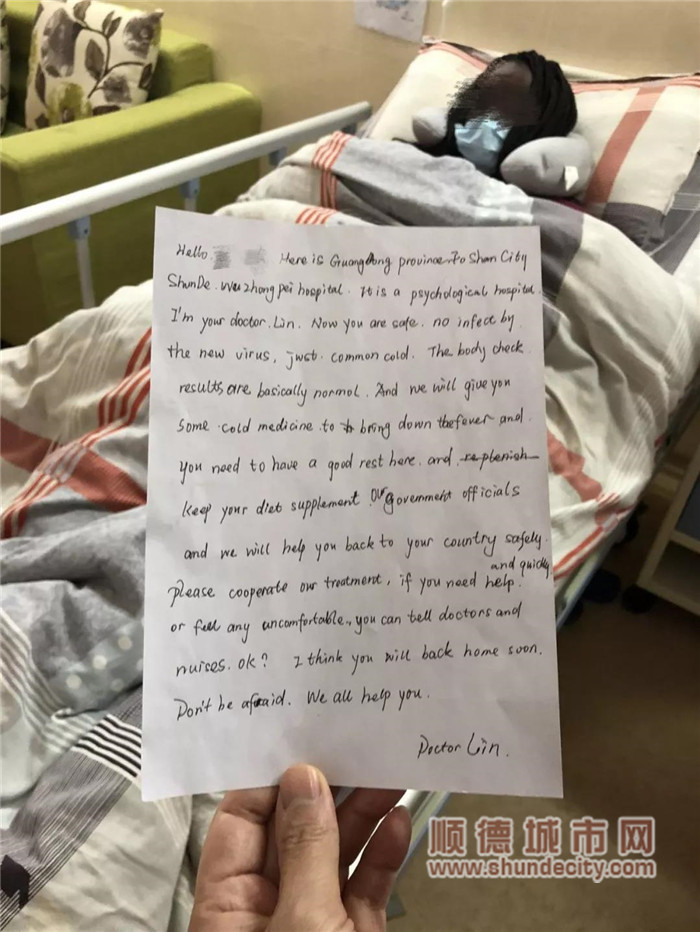 Hello Here is Guangdong province Fo Shan City
ShunDe. Wu zhong pei hospital. It is a psychological hospital.
I'm your doctor. Lin. Now you are safe. no infect by
the new virus, just common cold. The body check
results are basically normal. And we will give you
some cold medicine to bring down the fever and
you need to have a good rest here. and replenish
keep your diet supplement. Our government officials
and we will help you back to your country safely
and quickly.
please cooperate our treatment, if you need help
or feel any uncomfortable, you can tell doctors and
nurses. ok? I think you will back home soon.
Don't be afraid. We all help you.
Doctor Lin.
顺德城市网
www.shundecity.com